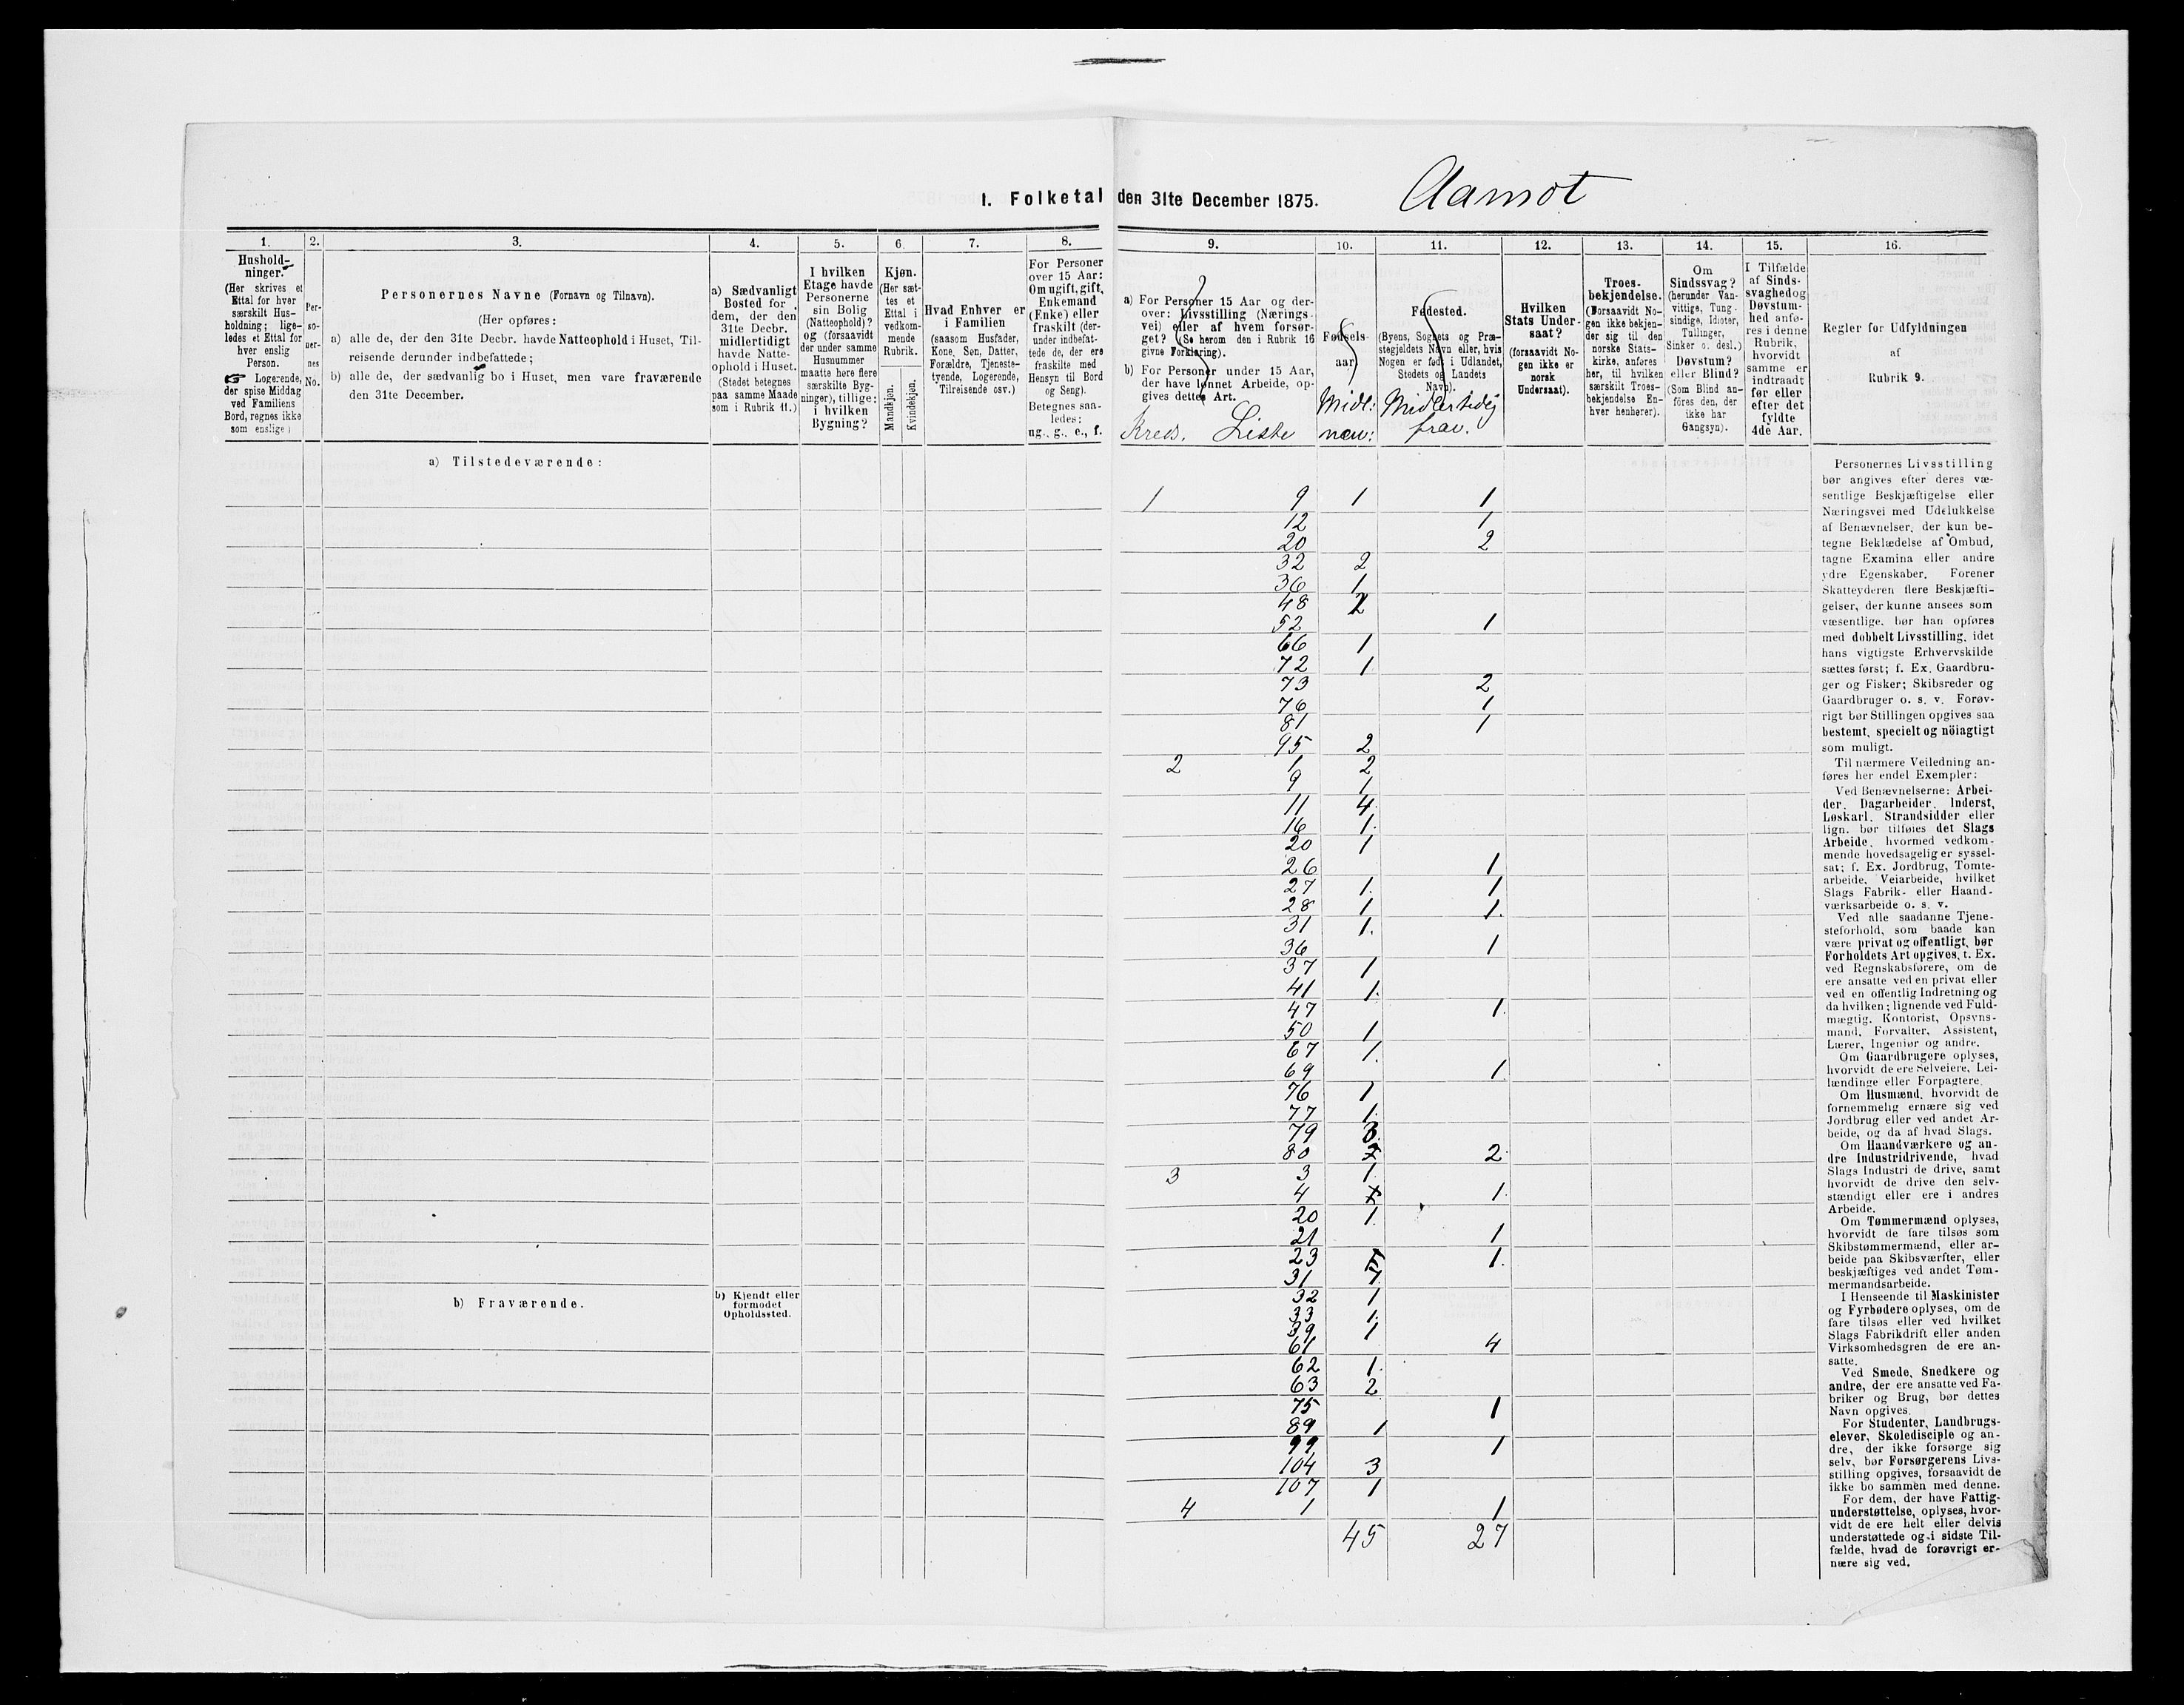 I. Folketal den 31te December 1875. Aamot
1.
Hushold-
ninger.
(Her skrives et
Ettal for hver
særskilt Hus-
holdning; lige-
ledes et Ettal for
hver enslig
Person.
☞ Logerende,
der spise Middag
ved Familiens
Bord, regnes ikke
som enslige)
2.
Per-
so-
ner-
nes
No.
3.
Personernes Navne (Fornavn og Tilnavn).
(Her opføres:
a) alle de, der den 31te Decbr. havde Natteophold i Huset, Til-
reisende derunder indbefattede;
b) alle de, der sædvanlig bo i Huset, men vare fraværende
den 31te December.
4.
a) Sædvanligt
Bosted for
dem, der den
31te Decbr.
midlertidigt
havde Natte-
ophold i Huset.
(Stedet betegnes
paa samme Maade
som i Rubrik 11.)
5.
I hvilken
Etage havde
Personerne
sin Bolig
(Natteophold)?
og (forsaavidt
der under samme
Husnummer
maatte høre flere
særskilte Byg-
ninger), tillige:
i hvilken
Bygning?
6.
Kjøn.
(Her sæt-
tes et
Ettal i
vedkom-
mende
Rubrik.
Mandkjøn.
Kvindekjøn.
7.
Hvad Enhver er
i Familien
(saasom Husfader,
Kone, Søn, Datter,
Forældre, Tjeneste-
tyende, Logerende,
Tilreisende osv.)
8.
For Personer
over 15 Aar:
Om ugift, gift,
Enkemand
(Enke) eller
fraskilt (der-
under indbefat-
tede de, der ere
fraskilte med
Hensyn til Bord
og Seng).
Betegnes saa-
ledes:
ug., g., e., f.
9.
a) For Personer 15 Aar og der-
over: Livsstilling (Nærings-
vei) eller af hvem forsør-
get? (Se herom den i Rubrik 16
givne Forklaring).
b) For Personer under 15 Aar,
der have lønnet Arbeide, op-
gives dettes Art.
Kreds. Liste
10.
Fødsels-
aar.
Midl:
nærv:
11.
Fødested.
(Byens, Sognets og Præ-
stegjeldets Navn eller, hvis
Nogen er født i Udlandet,
Stedets og Landets
Navn).
Midlertidig
frav.
12.
Hvilken
Stats Under-
saat?
(forsaavidt No-
gen ikke er
norsk
Undersaat).
13.
Troes-
bekjendelse.
(Forsaavidt No-
gen ikke bekjen-
der sig til den
norske Stats-
kirke, anføres
her, til hvilken
særskilt Troes-
bekjendelse En-
hver henhører).
14.
Om
Sindssvag?
(herunder Van-
vittige, Tung-
sindige, Idioter,
Tullinger,
Sinker o. desl.)
Døvstum?
eller Blind?
(Som Blind an-
føres den, der
ikke har
Gangsyn).
15.
I Tilfælde
af Sinds-
svaghed og
Døvstum-
hed anfø-
res i denne
Rubrik,
hvorvidt
samme er
indtraadt
før eller
efter det
fyldte
4de Aar.
16.
Regler for Udfyldningen
af
Rubrik 9.
a) Tilstedeværende:
b) Fraværende.
b) Kjendt eller
formodet
Opholdssted.
1 9 1 1
12 1
20 2
32 2
36 1
48 2
52 1
66 1
72 1
73 2
76 1
81 1
95 2
2 1 2
9 1
11 4
16 1.
20 1
26 1
27 1. 1
28 1 1.
31 1.
36 1
37 1
41 1.
47 1.
50 1
67 1.
69 1.
76 1
77 1.
79 3.
80 2.
3 3 1.
4 1.
20 1.
21 1
23 1.
31
32 1
33 1.
39 1
61 4
62 1.
63 2
75 1
89 1
99 1
104 3
107 1
4 1 1
45 27
Personernes Livsstilling
bør angives efter deres væ-
sentlige Beskjæftigelse eller
Næringsvei med Udelukkelse
af Benævnelser, der kun be-
tegne Beklædelse af Ombud,
tagne Examina eller andre
ydre Egenskaber. Forener
Skatteyderen flere Beskjæfti-
gelser, der kunne ansees som
væsentlige, bør han opføres
med dobbelt Livsstilling, idet
hans vigtigste Erhvervskilde
sættes først; f. Ex. Gaardbru-
ger og Fisker; Skibsreder og
Gaardbruger o. s. v. Forøv-
rigt bør Stillingen opgives saa
bestemt, specielt og nöiagtigt
som muligt.
Til nærmere Veiledning an-
føres her endel Exempler:
Ved Benævnelserne: Arbei-
der, Dagarbeider, Inderst,
Løskarl, Strandsidder eller
lign. bør tilføies det Slags
Arbeide, hvormed vedkom-
mende hovedsagelig er syssel-
sat; f. Ex. Jordbrug, Tomte-
arbeide, Veiarbeide, hvilket
Slags Fabrik- eller Haand-
værksarbeide o. s. v.
Ved alle saadanne Tjene-
steforhold, som baade kan
være privat og offentligt, bør
Forholdets Art opgives, t. Ex.
ved Regnskabsførere, om de
ere ansatte ved en privat eller
ved en offentlig Indretning og
da hvilken; lignende ved Fuld-
mægtig, Kontorist, Opsyns-
mand, Forvalter, Assistent,
Lærer, Ingeniør og andre.
Om Gaardbrugere oplyses,
hvorvidt de ere Selveiere, Lei-
lændinge eller Forpagtere.
Om Husmænd, hvorvidt de
fornemmelig ernære sig ved
Jordbrug eller ved andet Ar-
beide, og da af hvad Slags.
Om Haandværkere og an-
dre Industridrivende, hvad
Slags Industri de drive, samt
hvorvidt de drive den selv-
stændigt eller ere i andres
Arbeide.
Om Tømmermænd oplyses,
hvorvidt de fare tilsøs som
Skibstømmermænd, eller ar-
beide paa Skibsværfter, eller
beskjæftiges ved andet Tøm-
mermandsarbeide.
I Henseende til Maskinister
og Fyrbødere oplyses, om de
fare tilsøs eller ved hvilket
Slags Fabrikdrift eller anden
Virksomhedsgren de ere an-
satte.
Ved Smede, Snedkere og
andre, der ere ansatte ved Fa-
briker og Brug, bør dettes
Navn opgives.
For Studenter, Landbrugs-
elever, Skoledisciple og an-
dre, der ikke forsørge sig
selv, bør Forsørgerens Livs-
stilling opgives, forsaavidt de
ikke bo sammen med denne.
For dem, der have Fattig-
understøttelse, oplyses, hvor-
vidt de ere helt eller delvis
understøttede og i sidste Til-
fælde, hvad de forøvrigt er-
nære sig ved.